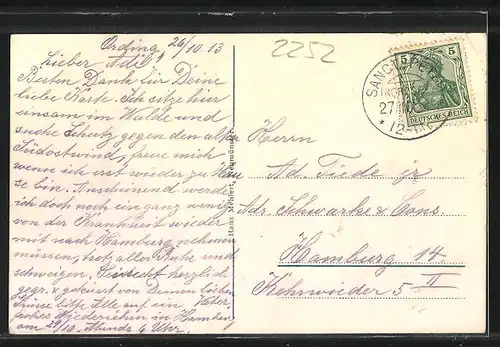 Ording, 26/10.13
2252
Lieber Adil!
Besten Dank für Deine
liebe Karte. Ich sitze hier
einsam im Walde und
suche Schutz gegen den alten
Südostwind, freue mich,
wenn ich erst wieder zu Hau
se bin. Anscheinend werde
ich doch noch ein ganz wenig
von der Krankheit wieder
mit nach Hamburg nehmen
müssen, trotz aller Ruhe und
schweigen. herzlich
gegr. & geküsst von Deinem lieben
Grüsse bitte Alle auf ein
frohes Wiedersehen in Hamburg
am 29/10. Abends 6 Uhr.
Hans Mehlert,
SANCT PETER
27
* 12-
5 5
DEUTSCHES REICH
Herrn
Ad. Tiede jr
Adr. Schwarke & Cons.
Hamburg 14
Kehrwieder 5 II